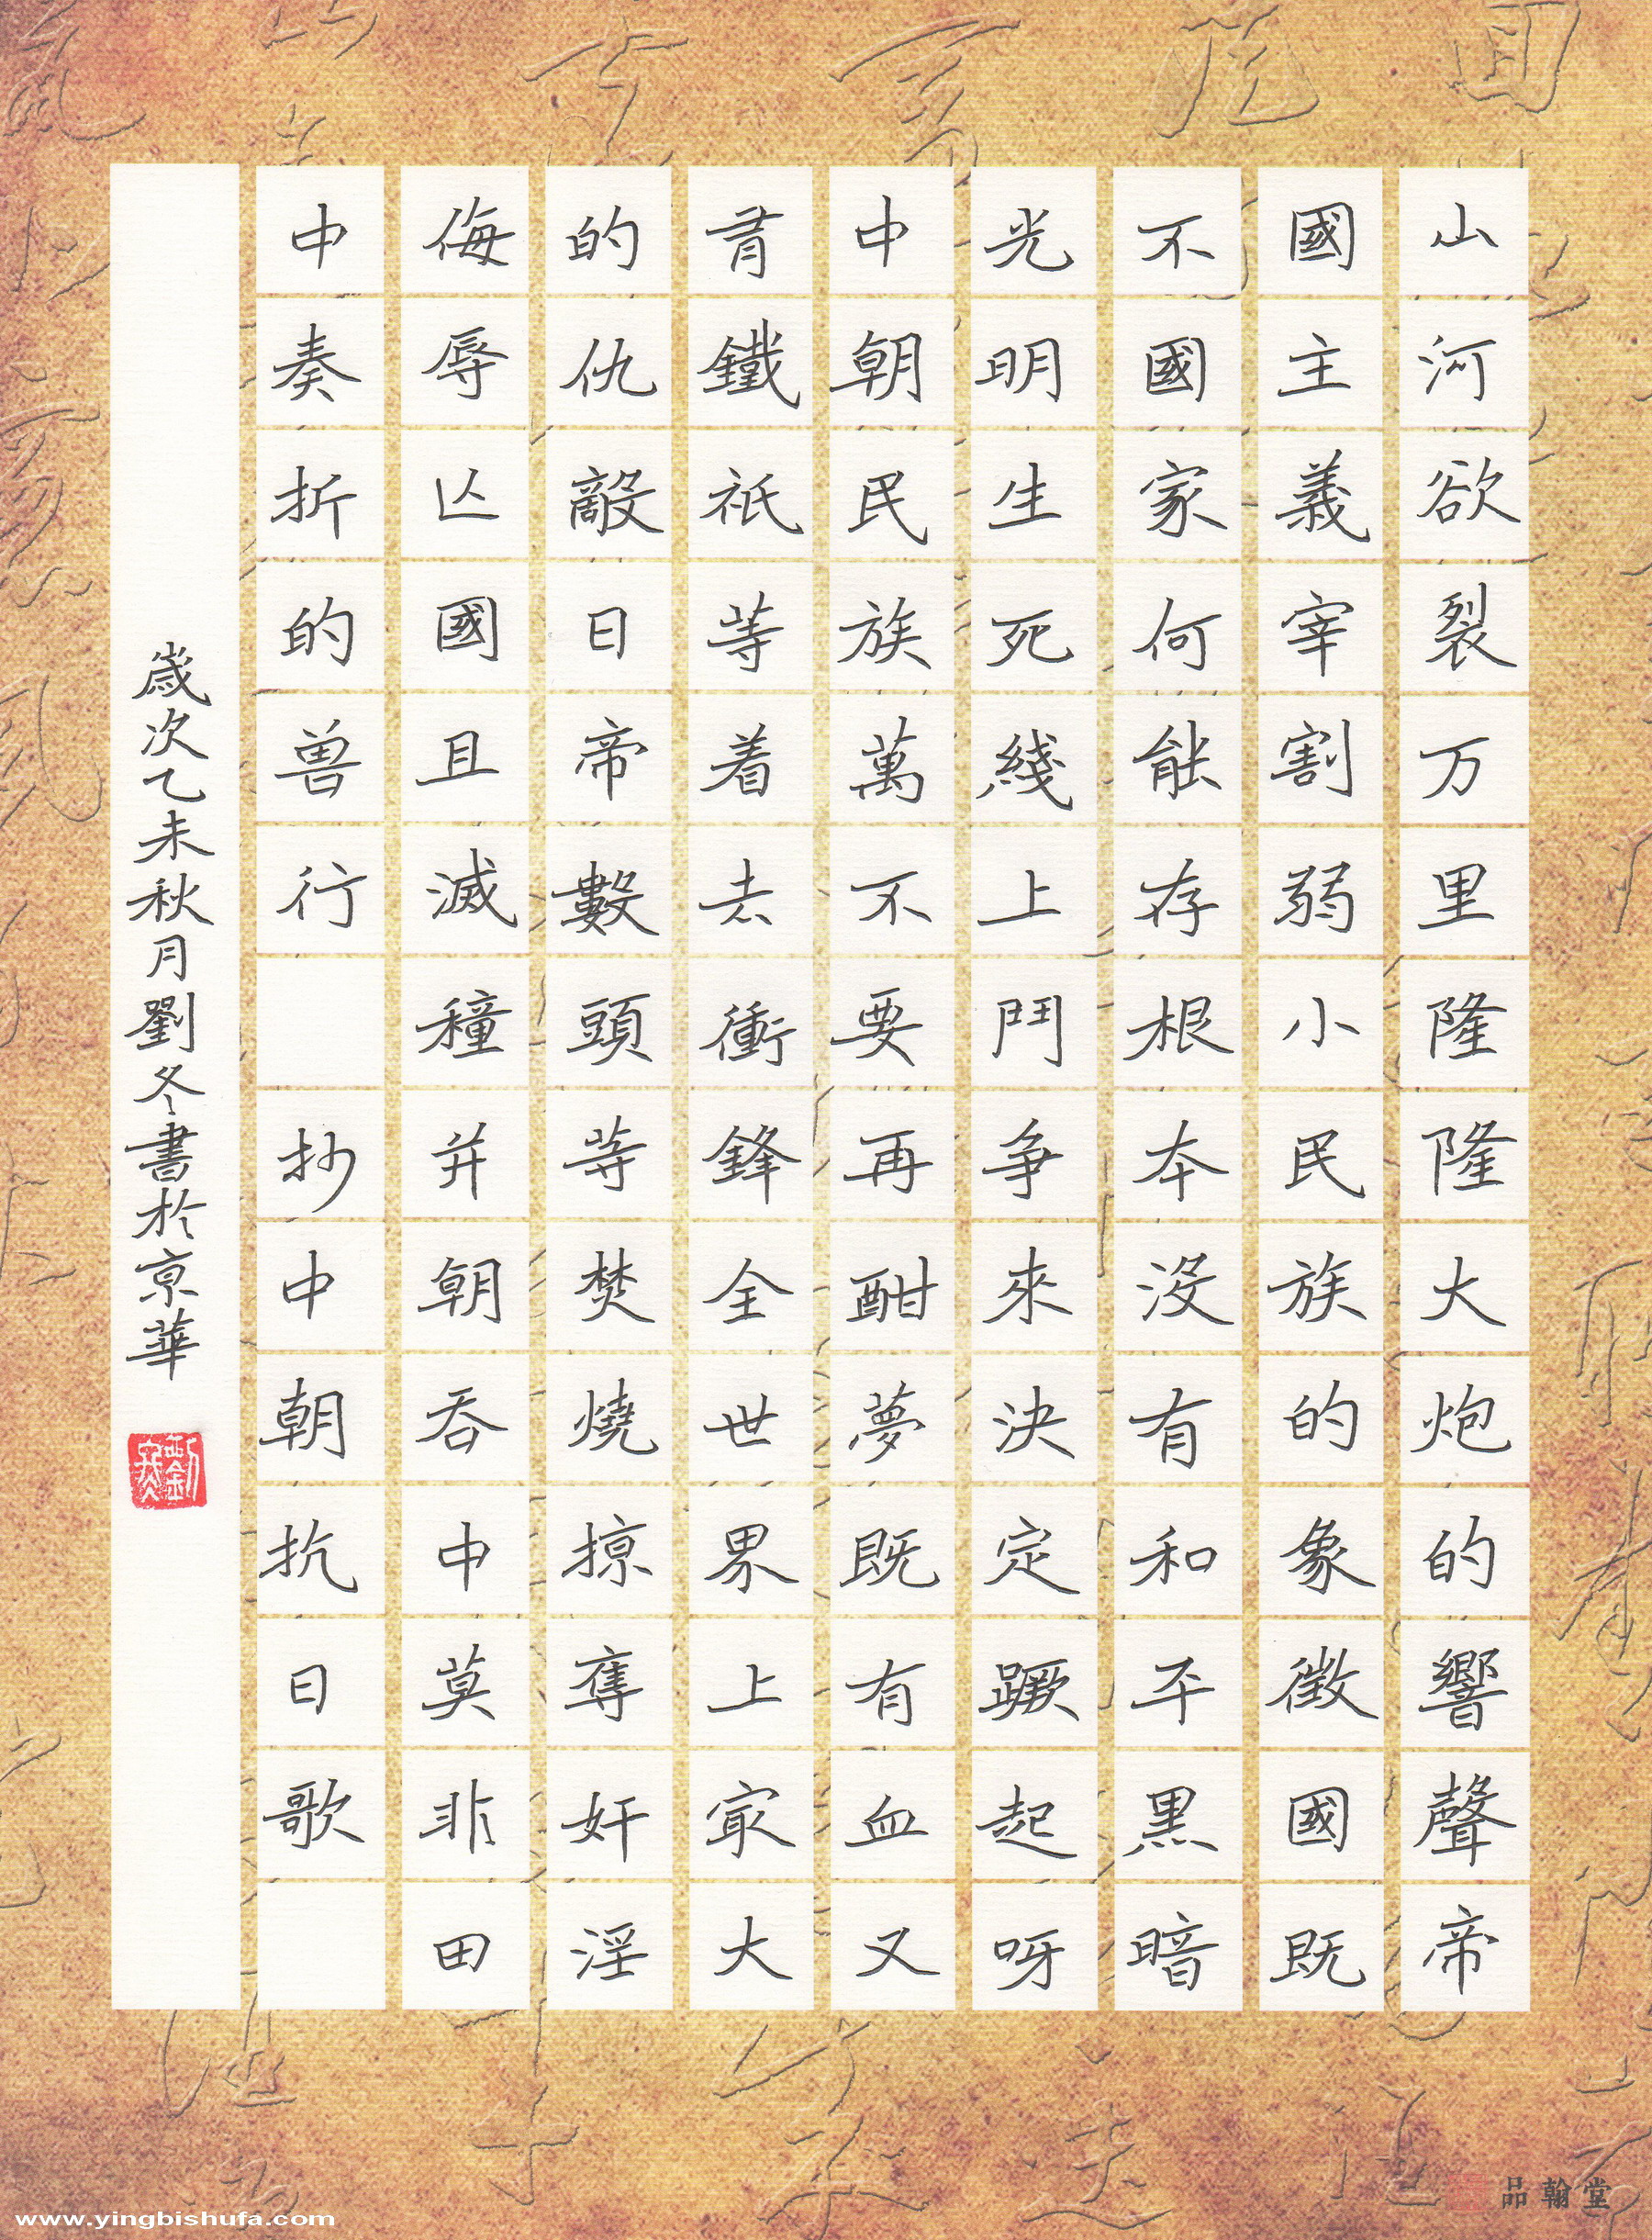 山河欲裂万里隆隆大炮的響聲帝
國主義宰割弱小民族的象徵國既
不國家何能存根本没有和平黑暗
光明生死綫上鬥争來決定蹶起呀
中朝民族萬不要再酣夢既有血又
有鐵祇等着去衝鋒全世界上最大
的仇敵日帝數頭等焚燒掠奪奸淫
侮辱亡國且滅種并朝吞中莫非田
中奏折的兽行 抄中朝抗日歌
歲次乙未秋月劉冬書於京華
劉冬
品翰堂
www.yingbishufa.com